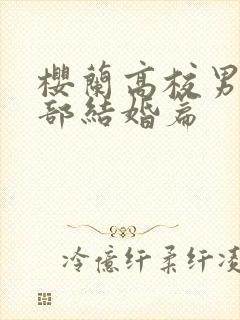 櫻蘭高校男
部結婚篇
冷億纤柔纤凌